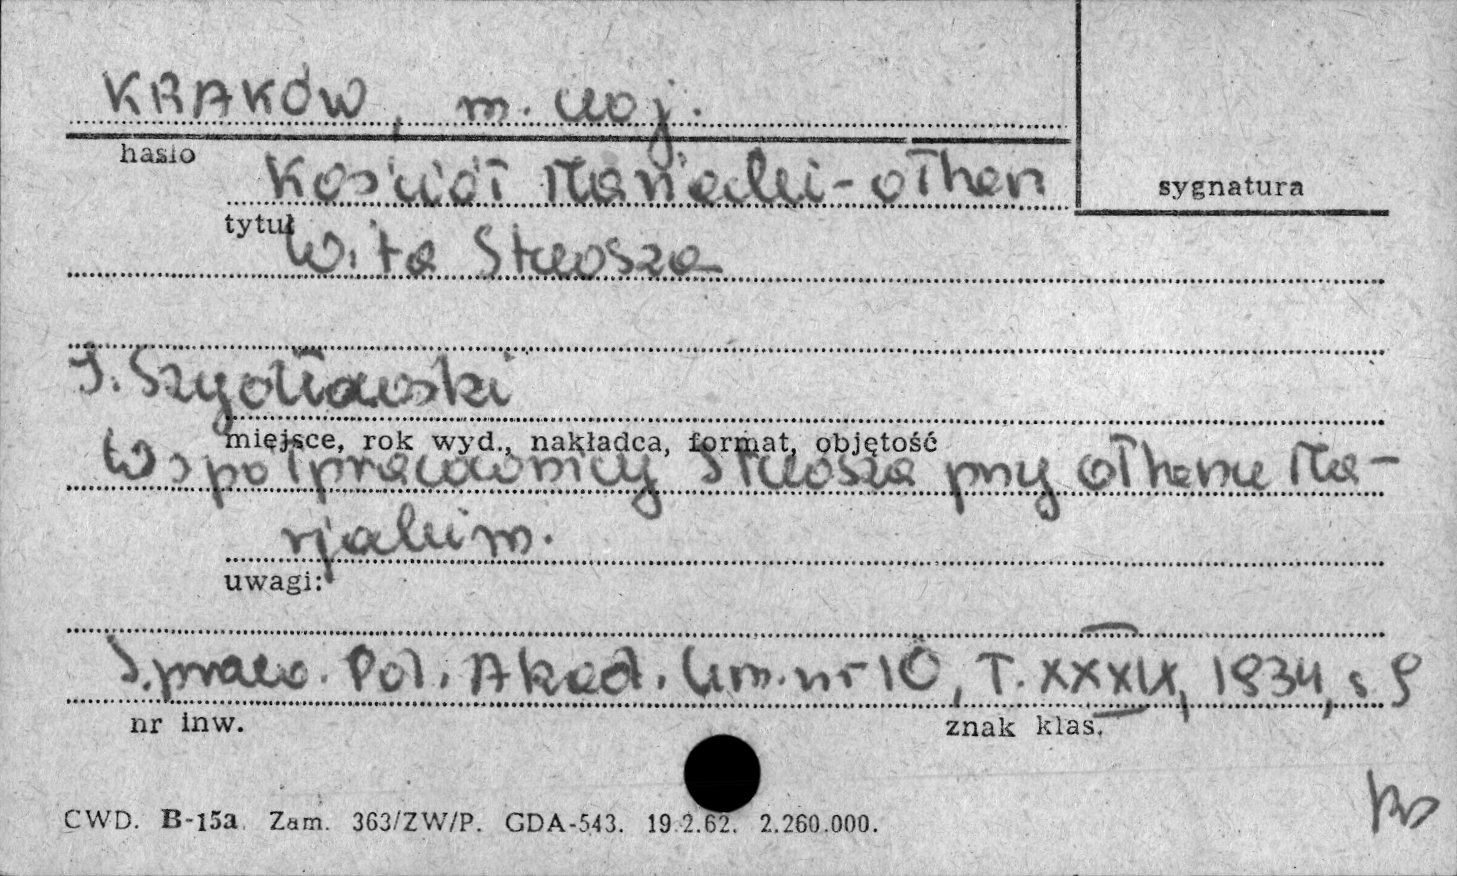 KRAKÓW, m. woj.
hasło
Kościół Mariacki - ołtarz
sygnatura
tytuł
Wita Stwosza
J. Szydłowski
miejsce, rok wyd., nakładca, format, objętość
Współpracownicy Stwosza przy ołtarzu Ma-
rjackim.
uwagi:
Spraw. Pol. Akad. Um. nr 10, T. XXXIX, 1934, s. 9
nr inw.
znak klas.
CWD. B-15a. Zam. 363/ZW/P. GDA-543. 19.2.62. 2.260.000.